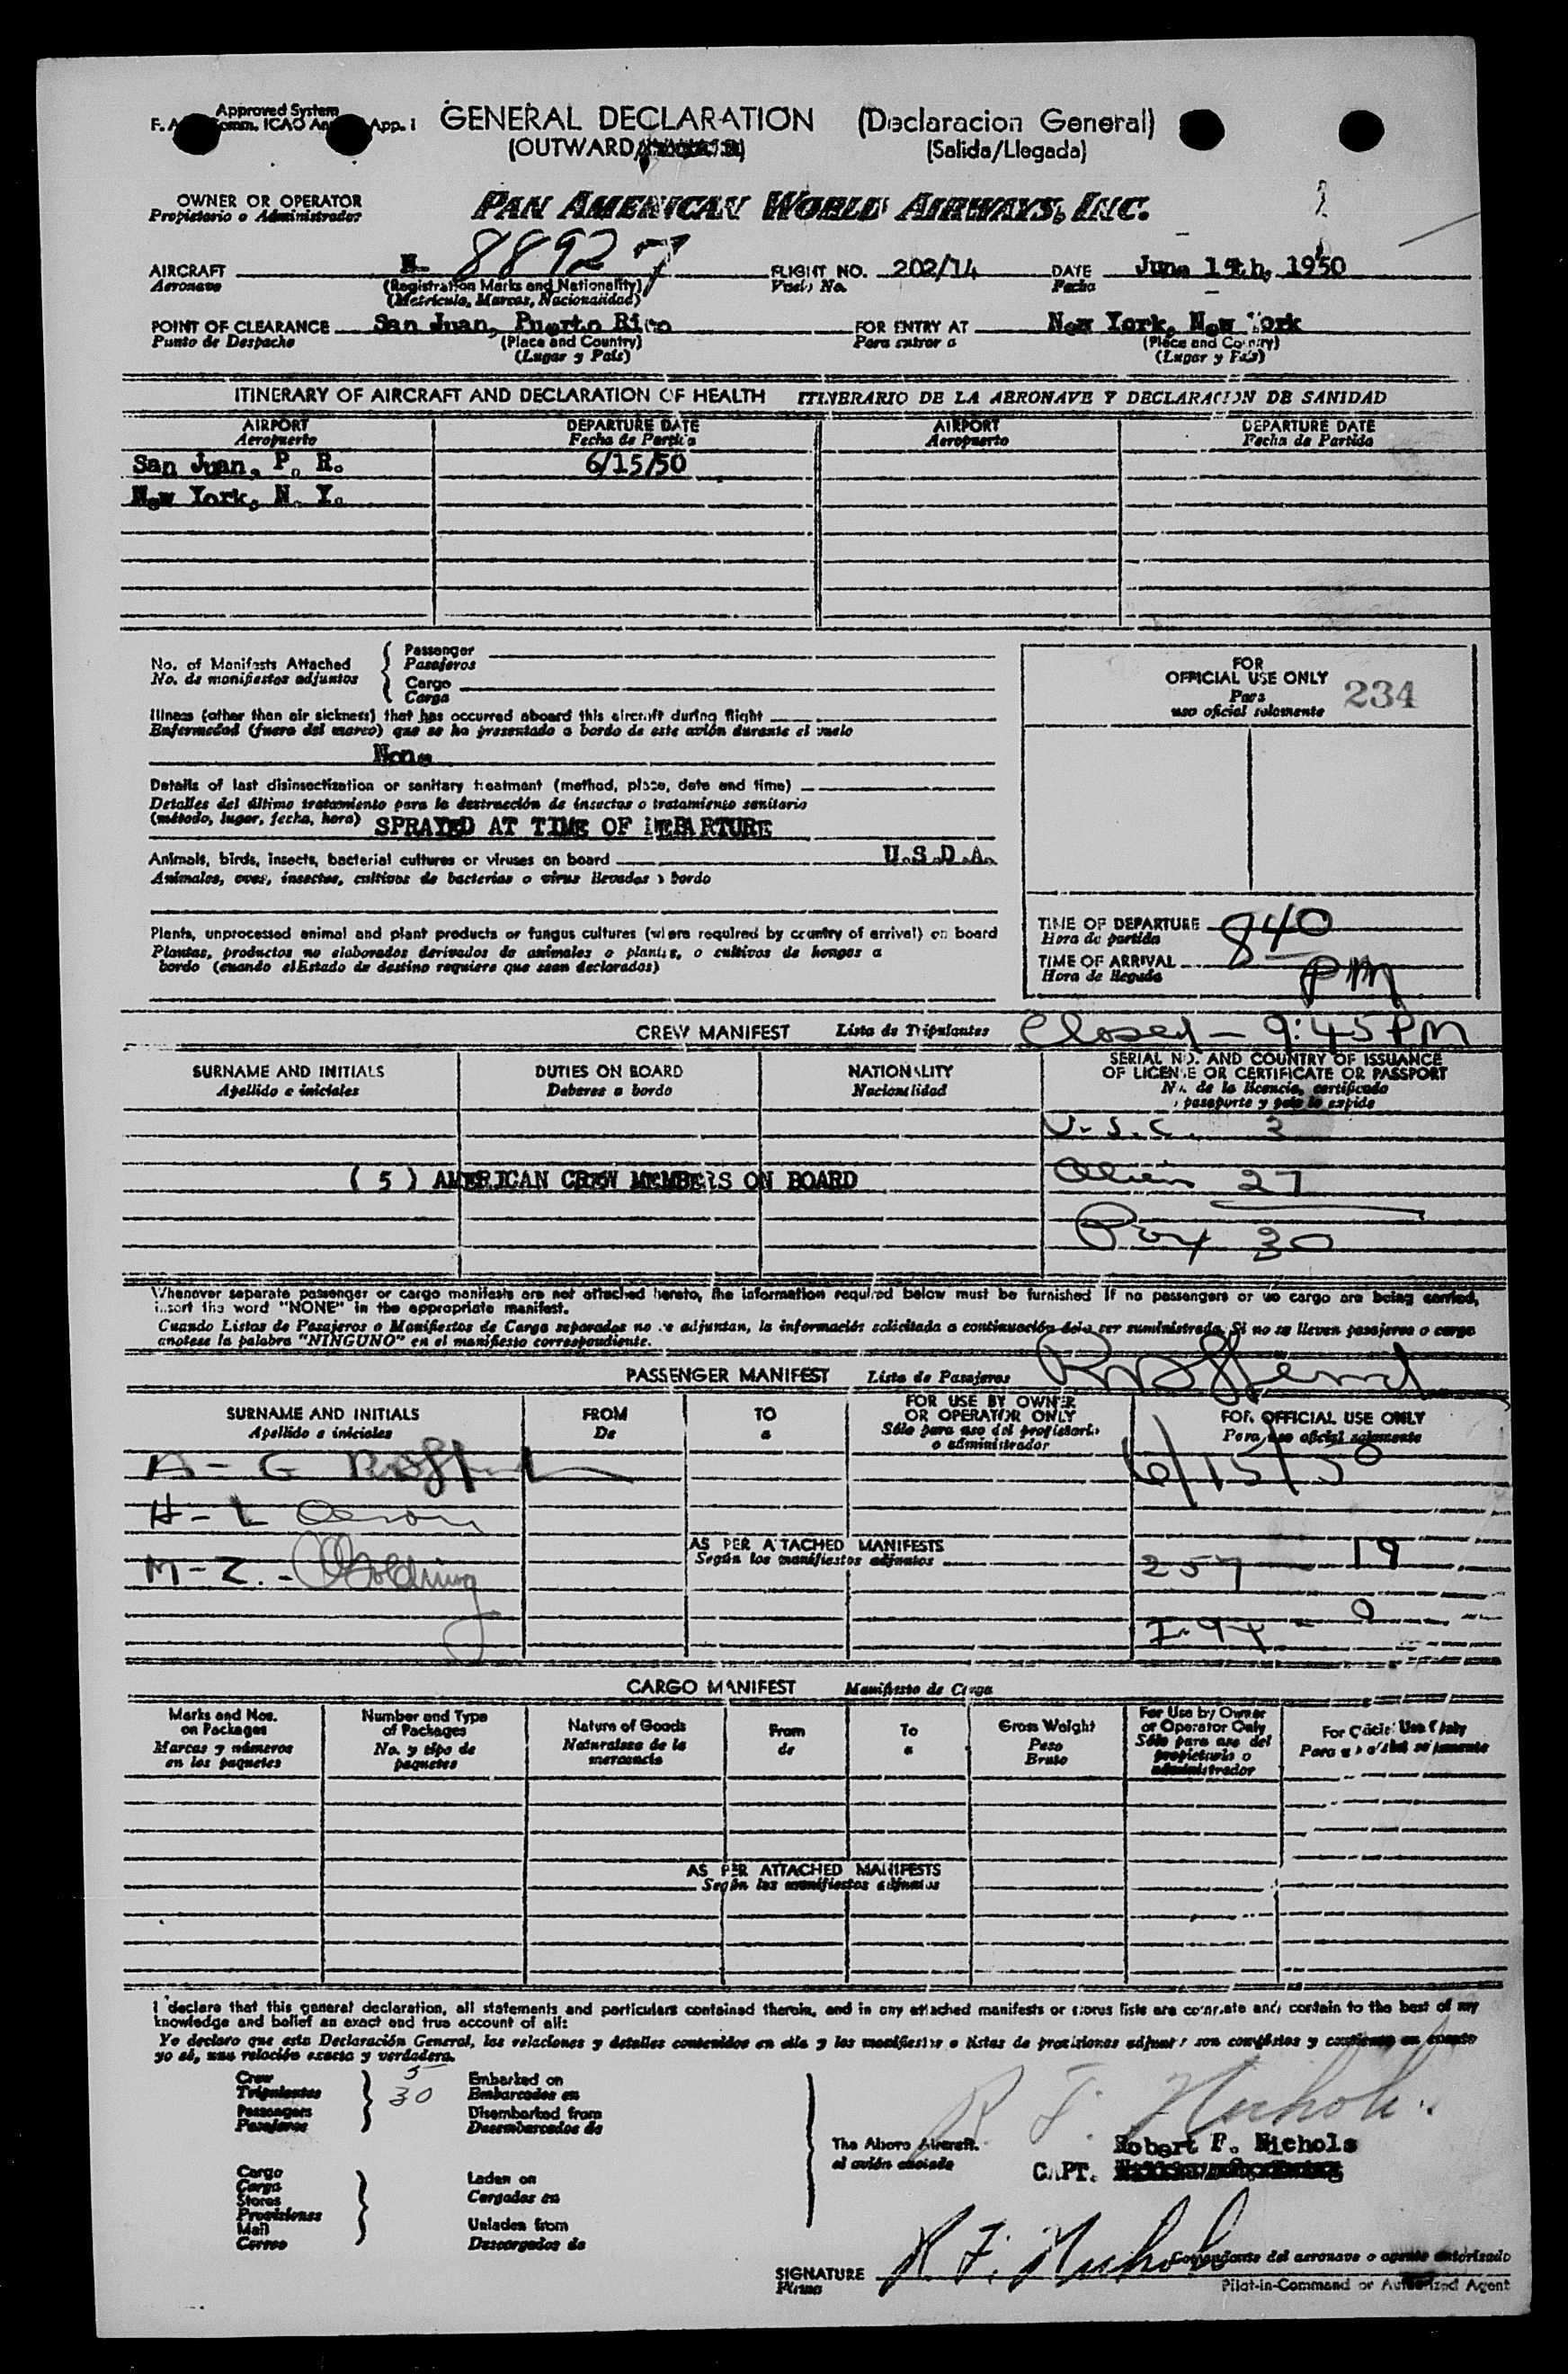 Approved System
GENERAL DECLARATION (Declaracion General)
(OUTWARD/ (Salida/Llegada)
OWNER OR OPERATOR
Propietario o Administrador
PAN AMERICAN WORLD AIRWAYS, INC.
AIRCRAFT N- 88927 FLIGHT NO. 202/14 DATE June 15th, 1950
Aeronave (Registration Marks and Nationality) Vuelo No. Fecha
(Matricula, Marcas, Nacionalidad)
POINT OF CLEARANCE San Juan, Puerto Rico FOR ENTRY AT New York, New York
Punto de Despacho (Place and Country) Para entrar a (Place and Country)
(Lugar y País) (Lugar y País)
ITINERARY OF AIRCRAFT AND DECLARATION OF HEALTH ITINERARIO DE LA AERONAVE Y DECLARACION DE SANIDAD
AIRPORT DEPARTURE DATE AIRPORT DEPARTURE DATE
Aeropuerto Fecha de Partida Aeropuerto Fecha de Partida
San Juan, P. R. 6/15/50
New York, N. Y.
No. of Manifests Attached
No. de manifiestos adjuntos
Passenger
Pasajeros
Cargo
Carga
Illness (other than air sickness) that has occurred aboard this aircraft during flight
Enfermedad (fuera del mareo) que se ha presentado a bordo de este avión durante el vuelo
None
Details of last disinsectization or sanitary treatment (method, place, date and time)
Detalles del último tratamiento para la destrucción de insectos o tratamiento sanitario
(método, lugar, fecha, hora) SPRAYED AT TIME OF DEPARTURE
Animals, birds, insects, bacterial cultures or viruses on board U.S.D.A.
Animales, aves, insectos, cultivos de bacterias o virus llevados a bordo
Plants, unprocessed animal and plant products or fungus cultures (where required by country of arrival) on board
Plantas, productos no elaborados derivados de animales o plantas, o cultivos de hongos a
bordo (cuando el Estado de destino requiere que sean declarados)
FOR
OFFICIAL USE ONLY
Para
uso oficial solamente
234
TIME OF DEPARTURE 840
Hora de partida
TIME OF ARRIVAL PM
Hora de llegada
CREW MANIFEST Lista de Tripulantes Closed - 9:45 PM
SURNAME AND INITIALS DUTIES ON BOARD NATIONALITY SERIAL NO. AND COUNTRY OF ISSUANCE
OF LICENSE OR CERTIFICATE OR PASSPORT
Apellido e iniciales Deberes a bordo Nacionalidad No. de la licencia, certificado
pasaporte y país lo expide
U.S.C. 3
Alien 27
( 5 ) AMERICAN CREW MEMBERS ON BOARD
30
Whenever separate passenger or cargo manifests are not attached hereto, the information required below must be furnished If no passengers or no cargo are being carried,
insert the word "NONE" in the appropriate manifest.
Cuando Listas de Pasajeros o Manifiestos de Carga separados no se adjuntan, la información solicitada a continuación debe ser suministrada. Si no se lleven pasajeros o carga
anotese la palabra "NINGUNO" en el manifiesto correspondiente.
PASSENGER MANIFEST Lista de Pasajeros
SURNAME AND INITIALS FROM TO FOR USE BY OWNER
OR OPERATOR ONLY FOR OFFICIAL USE ONLY
Apellido e iniciales De a Sólo para uso del propietario
o administrador Para uso oficial solamente
A - G
6/15/50
H - L
AS PER ATTACHED MANIFESTS
Según los manifiestos adjuntos
M - Z. - Golding
257 - 19
I-94 - 9
CARGO MANIFEST Manifiesto de Carga
Marks and Nos.
on Packages
Marcas y números
en los paquetes
Number and Type
of Packages
No. y tipo de
paquetes
Nature of Goods
Naturaleza de la
mercancia
From
de
To
a
Gross Weight
Peso
Bruto
For Use by Owner
or Operator Only
Sólo para uso del
propietario o
administrador
For Official Use Only
Para uso oficial solamente
AS PER ATTACHED MANIFESTS
Según los manifiestos adjuntos
I declare that this general declaration, all statements and particulars contained therein, and in any attached manifests or stores lists are complete and contain to the best of my
knowledge and belief an exact and true account of all:
Yo declaro que esta Declaración General, las relaciones y detalles contenidos en ella y los manifiestos o listas de provisiones adjuntas son completos y contienen en cuanto
yo sé, una relación exacta y verdadera.
Crew 5
Tripulantes 30
Passengers
Pasajeros
Embarked on
Embarcados en
Disembarked from
Desembarcados de
Cargo
Carga
Stores
Provisiones
Mail
Correo
Laden on
Cargados en
Unladen from
Descargados de
The Above Aircraft.
al avión
R F. Nichols
Robert F. Nichols
CAPT.
SIGNATURE R F. Nichols
Firma
Comandante del aeronave o agente autorizado
Pilot-in-Command or Authorized Agent